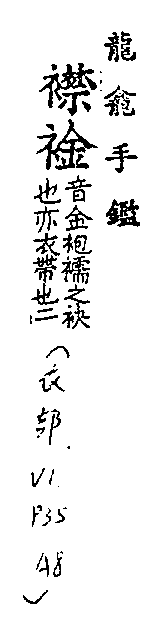 龍龕手鑑
襟䘳
音金袍襦之袂
也亦衣帶也二
(衣部.
V1.
P35
A8)